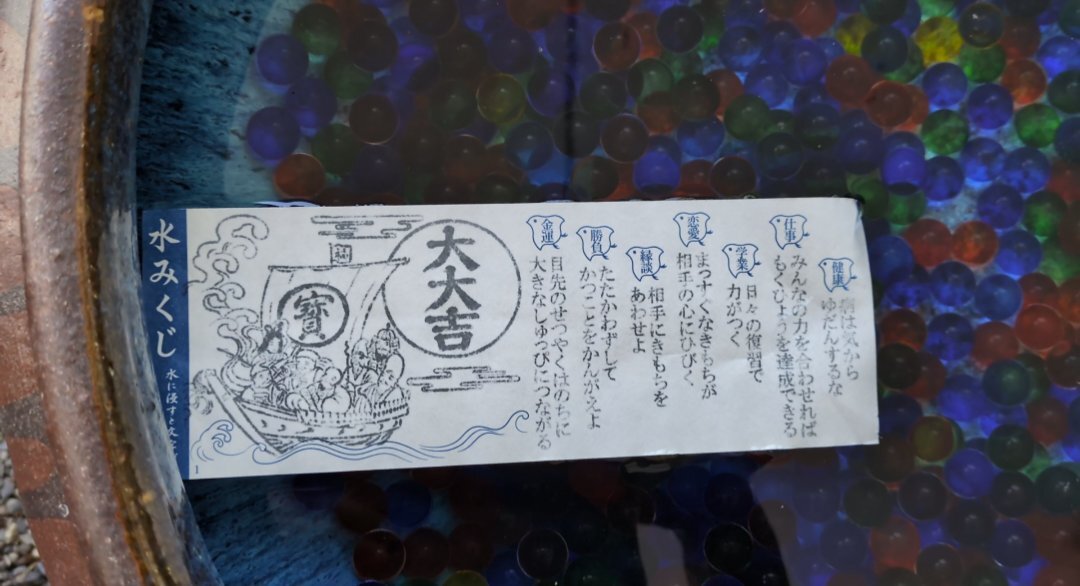 健康
病は気から
ゆだんするな
仕事
みんなの力を合わせれば
もくひょうを達成できる
学業
日々の復習で
力がつく
恋愛
まっすぐなきもちが
相手の心にひびく
縁談
相手にきもちを
あわせよ
勝負
たたかわずして
かつことをかんがえよ
金運
目先のせつやくはのちに
大きなしゅっぴにつながる
大大吉
福
寶
水みくじ
水に浸すと文字
1